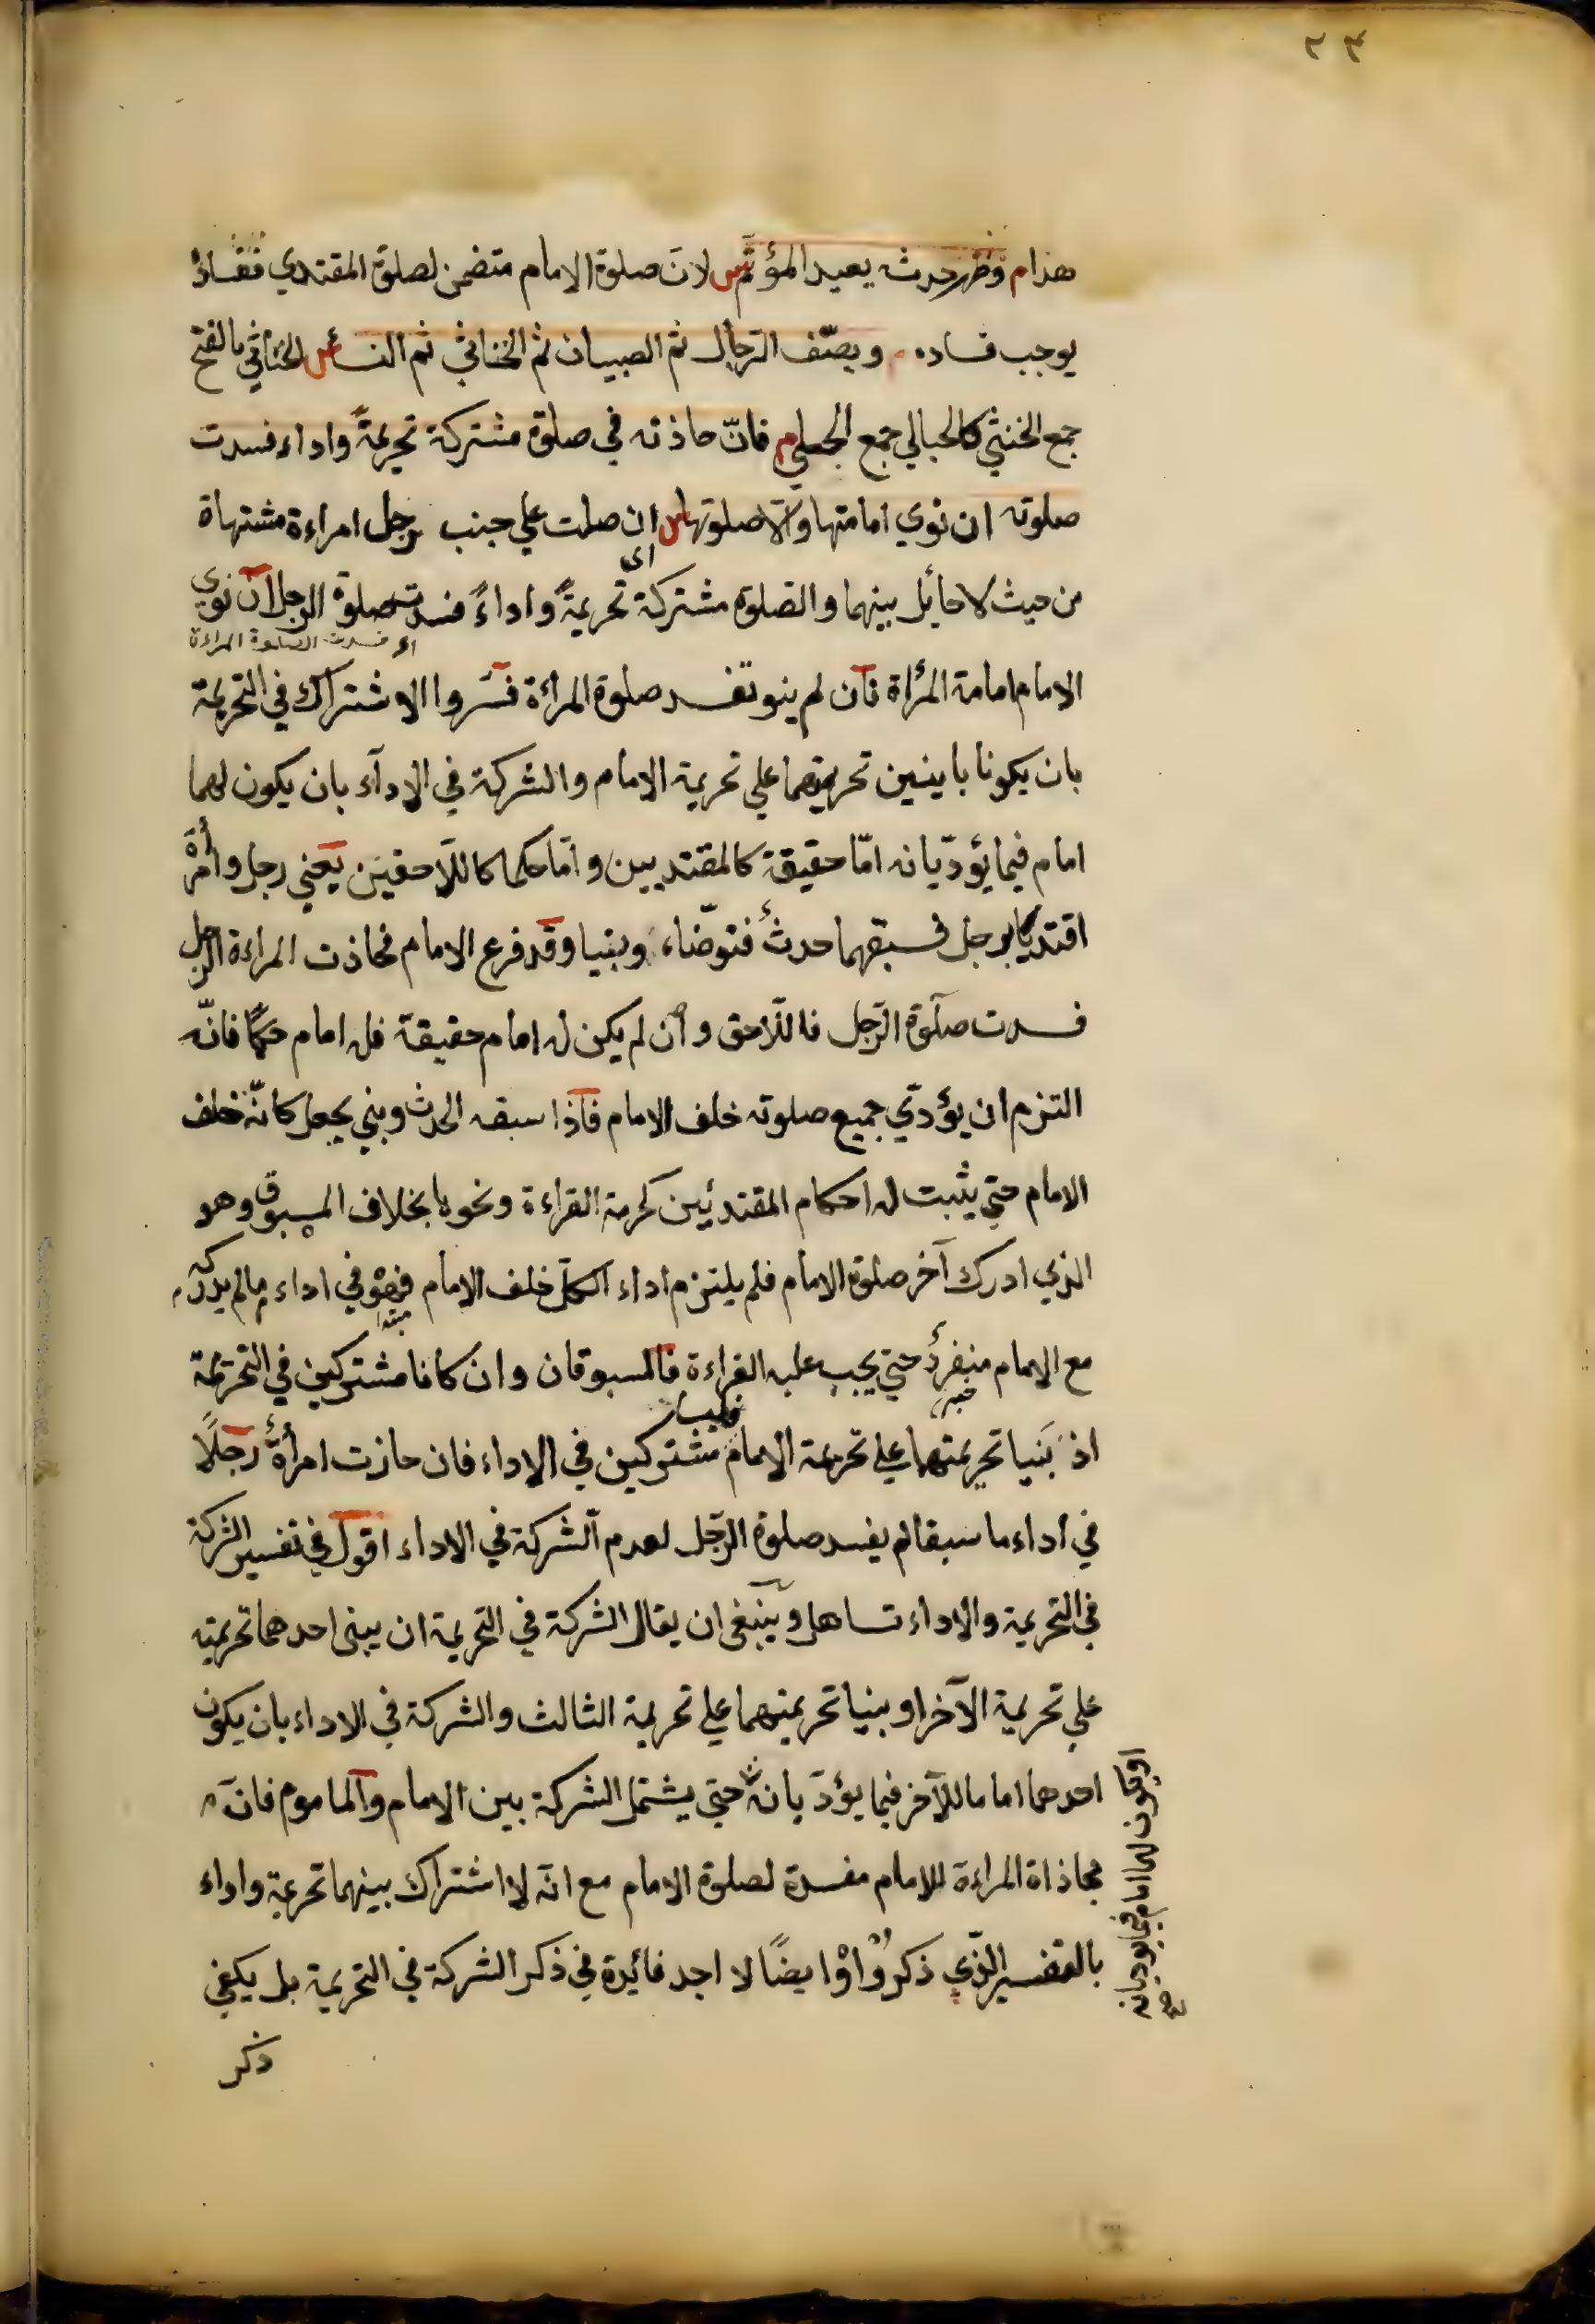 ٢٣
هذا م وظهر حدث يعيد المؤتم س لان صلوة الامام متضمن لصلوة المقتدي ففساده
يوجب فساده م ويصف الرجال ثم الصبيان ثم الخناثي ثم النساء س الخناثي بالفتح
جمع الخنثي كالحبالي جمع الحبلي م فانّ حاذته في صلوة مشتركة تحريمةً واداء فسدت
صلوته ان نوي امامتها والّا صلوتها س ان صلت علي جنب رجل امراءة مشتهاة
اى
من حيث لا حائل بينهما والصلوة مشتركة تحريمةً واداءً فسدت صلوة الرجل ان نوي
اى فسدت الصلوة المراءة
الامام امامة المرأة فان لم ينو تفسد صلوة المرأة فسّروا الاشتراك في التحريمة
بان يكونا بانيين تحريمتهما علي تحريمة الامام والشركة في الاداء بان يكون لهما
امام فيما يؤدّيانه امّا حقيقة كالمقتديين وامّا حكما كاللّاحقين يعني رجل وامرأة
اقتديا برجل فسبقهما حدث فتوضّاء وبنيا وقد فرع الامام فحاذت المراءة الرجل
فسدت صلوة الرّجل فاللّاحق وان لم يكن له امام حقيقة فله امام حكمًا فانّه
التزم ان يؤدّي جميع صلوته خلف الامام فاذا سبقه الحدث وبني يجعل كانّه خلف
الامام حتي يثبت له احكام المقتدئين كحرمة القراءة ونحوها بخلاف المسبوق وهو
الذي ادرك آخر صلوة الامام فلم يلتزم اداء الكلّ خلف الامام فهو في اداء مالم يدركه
مبتدا
مع الامام منفردٌ حتي يجب عليه القراءة فالمسبوقان وان كانا مشتركين في التحريمة
خبر
فليسا
اذ بَنيا تحريمتهما علي تحريمة الامام مشتركين في الاداء فان حازت امرأةٌ رجلًا
في اداء ما سبقا لم يفسد صلوة الرّجل لعدم الشركة في الاداء اقول في تفسير الشركة
في التحريمة والاداء تساهل وينبغى ان يقال الشركة في التحريمة ان يبنى احدهما تحريمته
علي تحريمة الآخر او بنيا تحريمتهما علي تحريمة الثالث والشركة في الاداء بان يكون
احدهما اماما للآخر فيما يؤدّيانه حتي يشتمل الشركة بين الامام والماموم فانّ
محاذاة المراءة للامام مفسدة لصلوة الامام مع انّه لا اشتراك بينهما تحريمة واداء
بالتفسير الّذي ذكروا وايضًا لا اجد فائدة في ذكر الشركة في التحريمة بل يكفي
ذكر
او يكون لهما امام فيما يؤديانه
صح